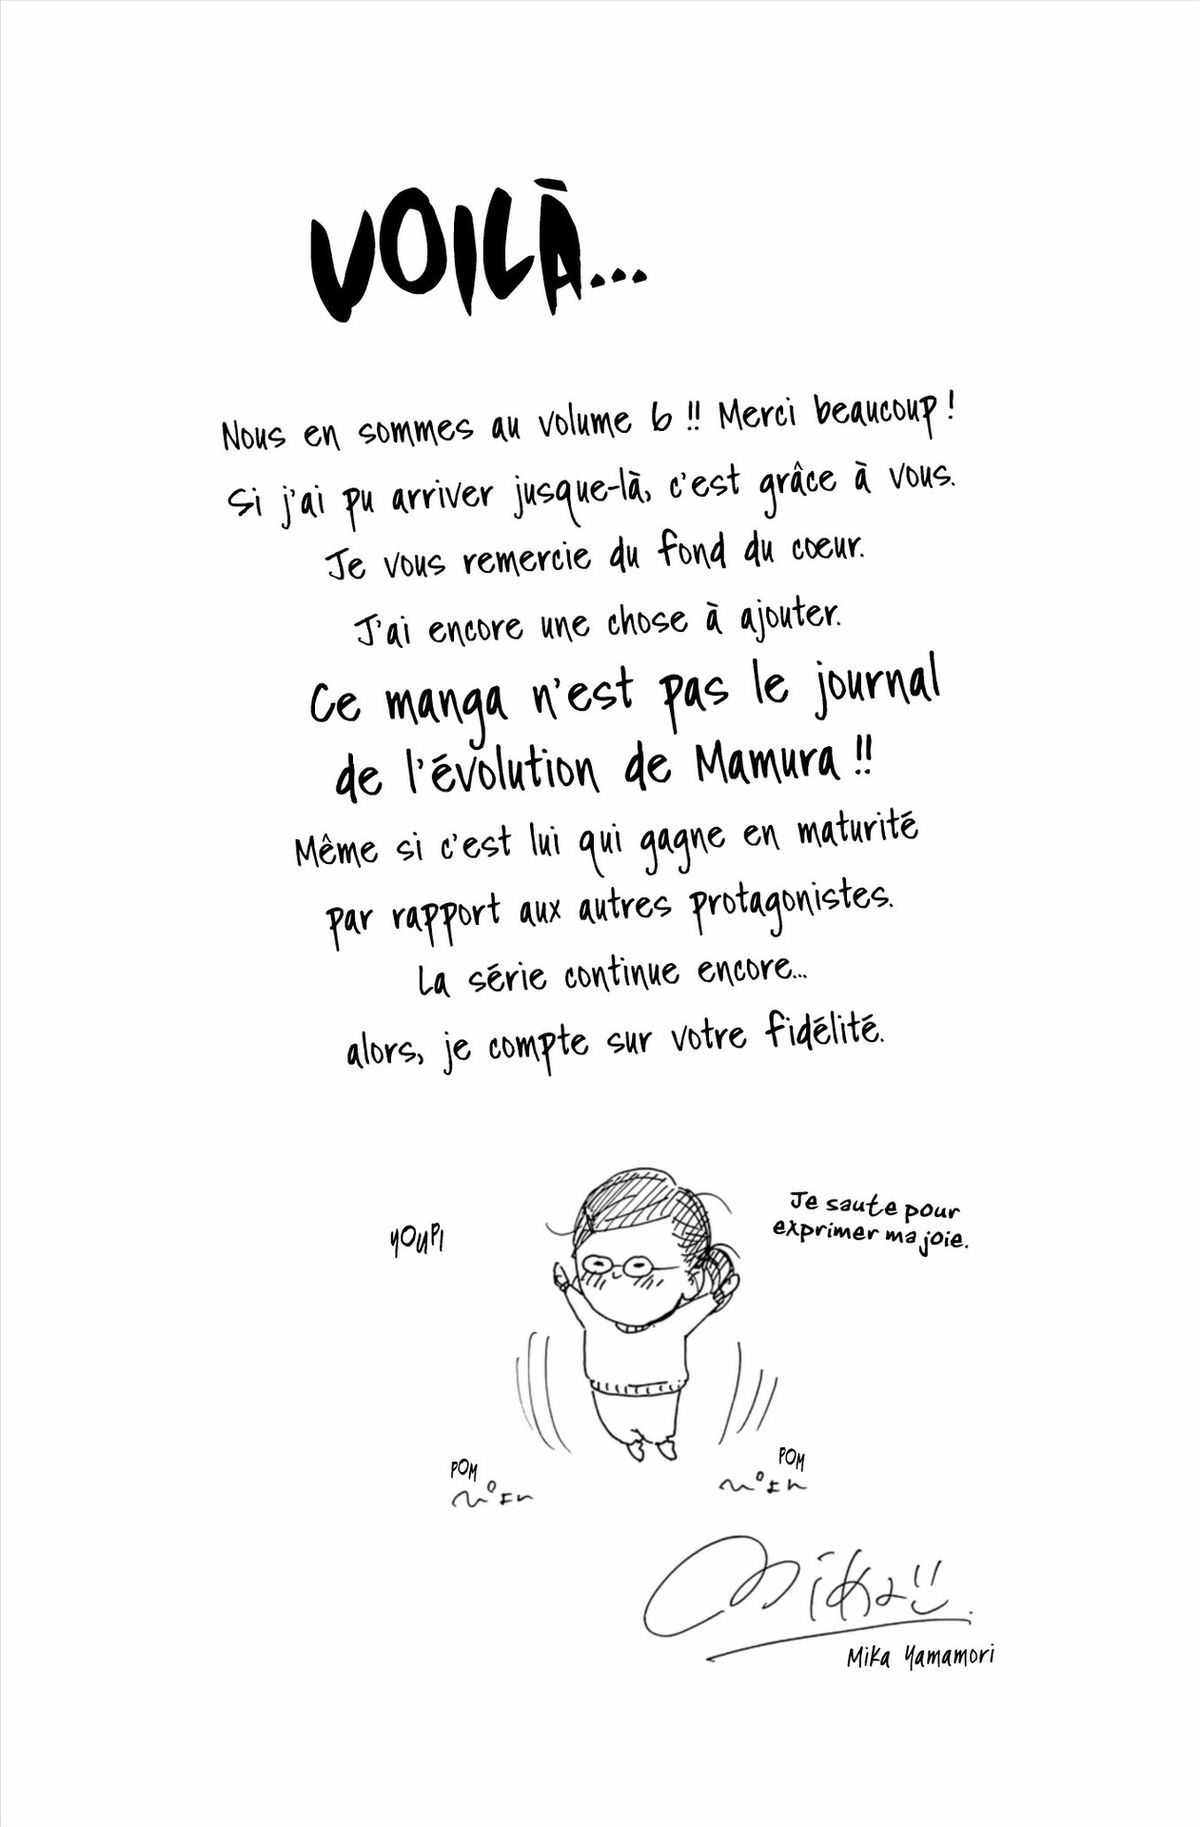 VOILÀ...
Nous en sommes au volume 6 !! Merci beaucoup !
Si j'ai pu arriver jusque-là, c'est grâce à vous.
Je vous remercie du fond du cœur.
J'ai encore une chose à ajouter.
Ce manga n'est pas le journal
de l'évolution de Mamura !!
Même si c'est lui qui gagne en maturité
par rapport aux autres protagonistes.
La série continue encore...
alors, je compte sur votre fidélité.
YOUPI
Je saute pour
exprimer ma joie.
POM
POM
Mika Yamamori